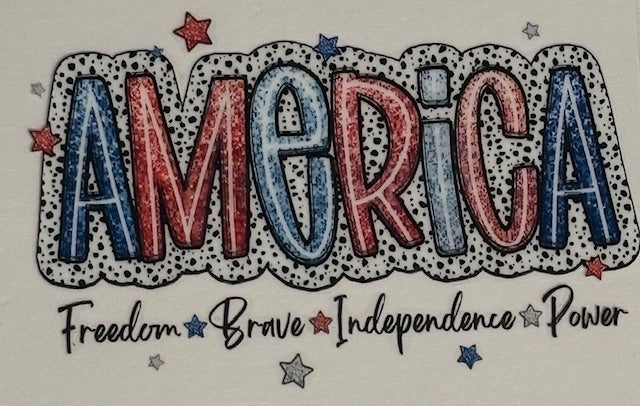 AMeRiCA
Freedom★Brave★Independence★Power